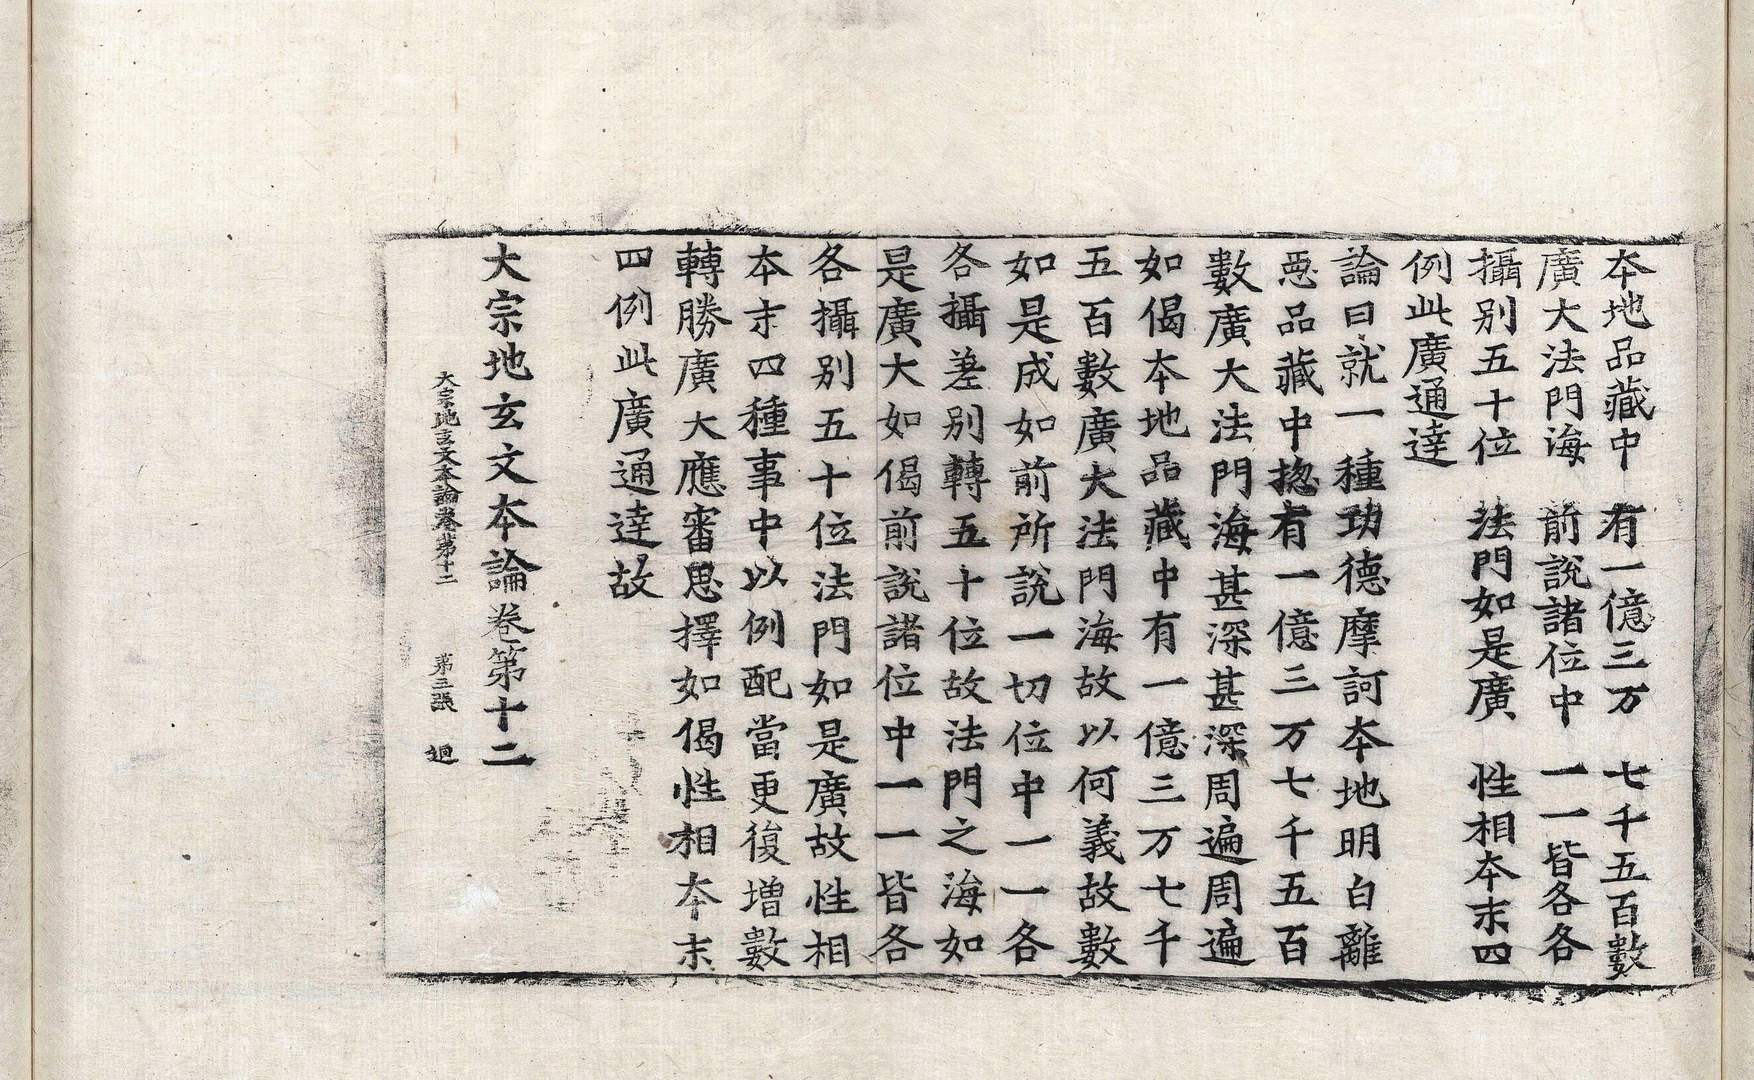 本地品藏中　有一億三万　七千五百數
廣大法門海　前說諸位中　一一皆各各
攝別五十位　法門如是廣　性相本末四
例此廣通達
論曰就一種功德摩訶本地明白離
惡品藏中揔有一億三万七千五百
數廣大法門海甚深甚深周遍周遍
如偈本地品藏中有一億三万七千
五百數廣大法門海故以何義故數
如是成如前所說一切位中一一各
各攝差別轉五十位故法門之海如
是廣大如偈前說諸位中一一皆各
各攝別五十位法門如是廣故性相
本末四種事中以例配當更復增數
轉勝廣大應審思擇如偈性相本末
四例此廣通達故
大宗地玄文本論卷第十二
大宗地玄文本論卷第十二　第三張　迴